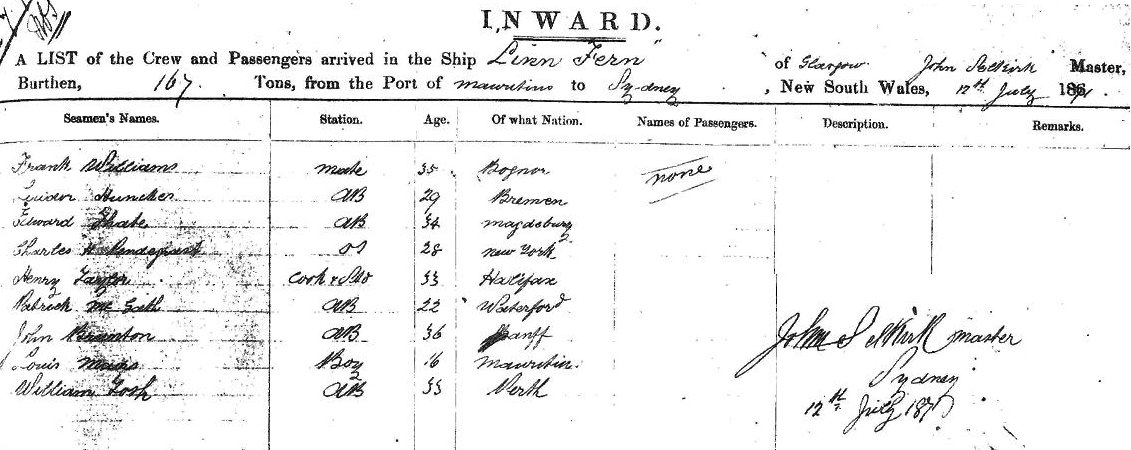 INWARD.
A LIST of the Crew and Passengers arrived in the Ship "Linn Fern" of Glasgow John Selkirk Master,
Burthen, 167 Tons, from the Port of mauritius to Sydney, New South Wales, 12th July 186
Seamen's Names. Station. Age. Of what Nation. Names of Passengers. Description. Remarks.
Frank Williams mate 35 Bognor none
Huncker AB 29 Bremen
Edward Thate AB 34 magdeburg
Charles H Pendegrast OS 28 new York
Henry Taylor Cook & Std 33 Halifax
Patrick Mc Gath AB 22 Waterford
John Brunton AB 36 Banff
Louis Boy 16 mauritius
William AB 33 Perth
John Selkirk master
Sydney
12th July 187